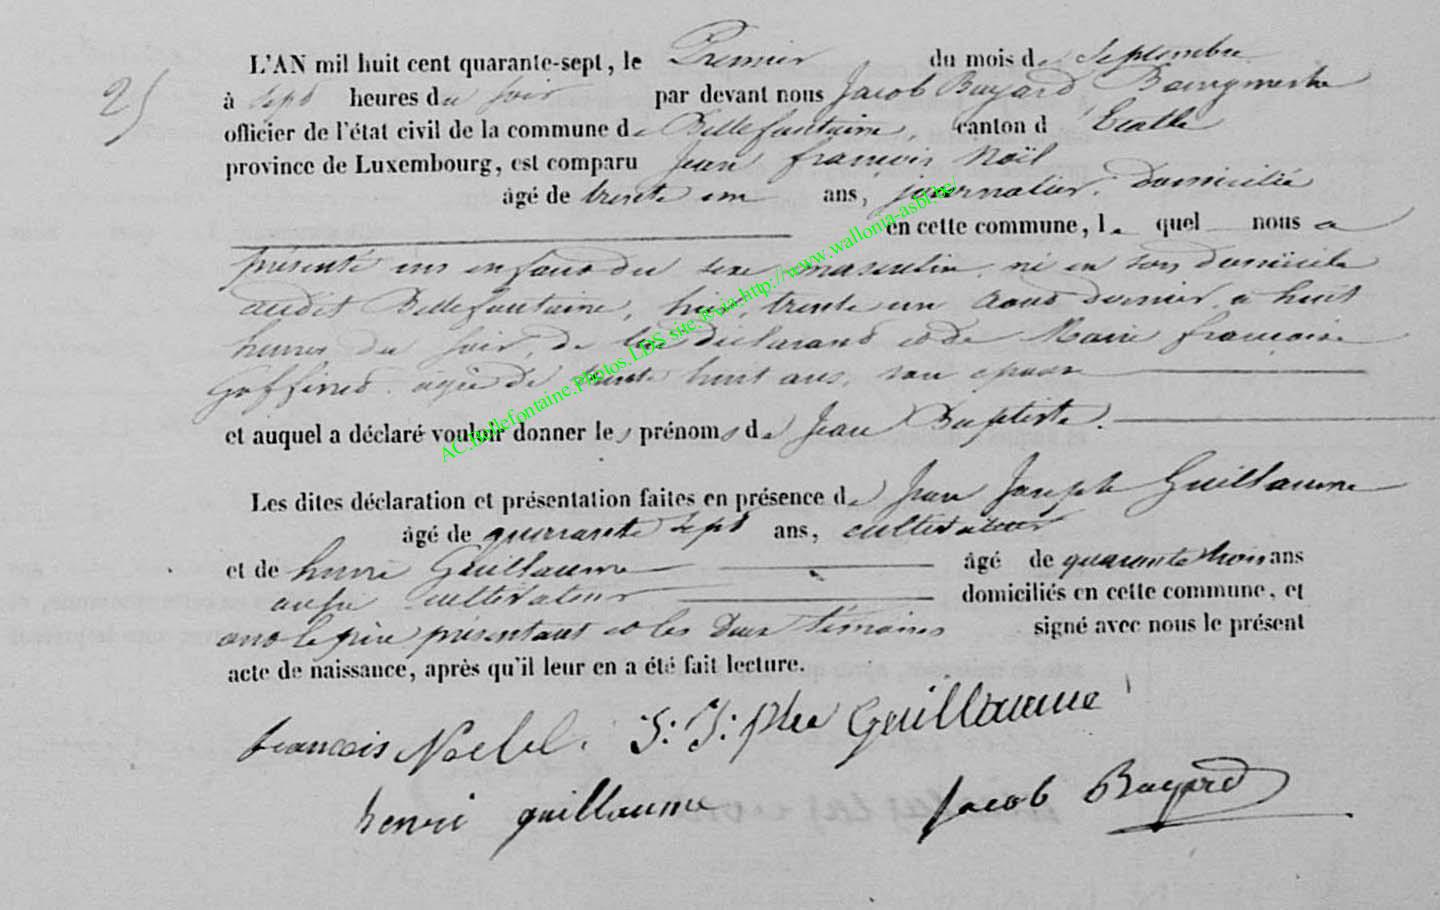 25
L'AN mil huit cent quarante-sept, le Premier du mois de Septembre
à Sept heures du soir par devant nous Jacob Buyard Bourgmestre
officier de l'état civil de la commune de Bellefontaine, canton d'Etalle
province de Luxembourg, est comparu Jean françois Noël
âgé de trente un ans, journalier, domicilié
en cette commune, le quel nous a
présenté un enfant du sexe masculin, né en son domicile
audit Bellefontaine, hier, trente un Aout dernier, à huit
heures du soir, de lui déclarant et de Marie françoise
Goffinet agée de trente huit ans, son epouse
et auquel a déclaré vouloir donner les prénoms de Jean Baptiste.
Les dites déclaration et présentation faites en présence de Jean Joseph Guillaume
âgé de quarante sept ans, cultivateur
et de henri Guillaume âgé de quarante trois ans
aussi cultivateur domiciliés en cette commune, et
ont le père présentant et les deux témoins signé avec nous le présent
acte de naissance, après qu'il leur en a été fait lecture.
francois Noelel. J: J: phe Guillaume
henri guillaume Jacob Buyard
AC.Bellefontaine.Photos.LDS site.®via.http://www.wallonia-asbl.be/